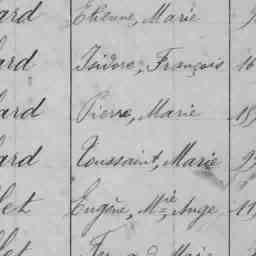 ard Etienne, Marie
ard Isidore, François 16
ard Pierre, Marie
ard Toussaint, Marie
let Eugène, Mie Ange 11